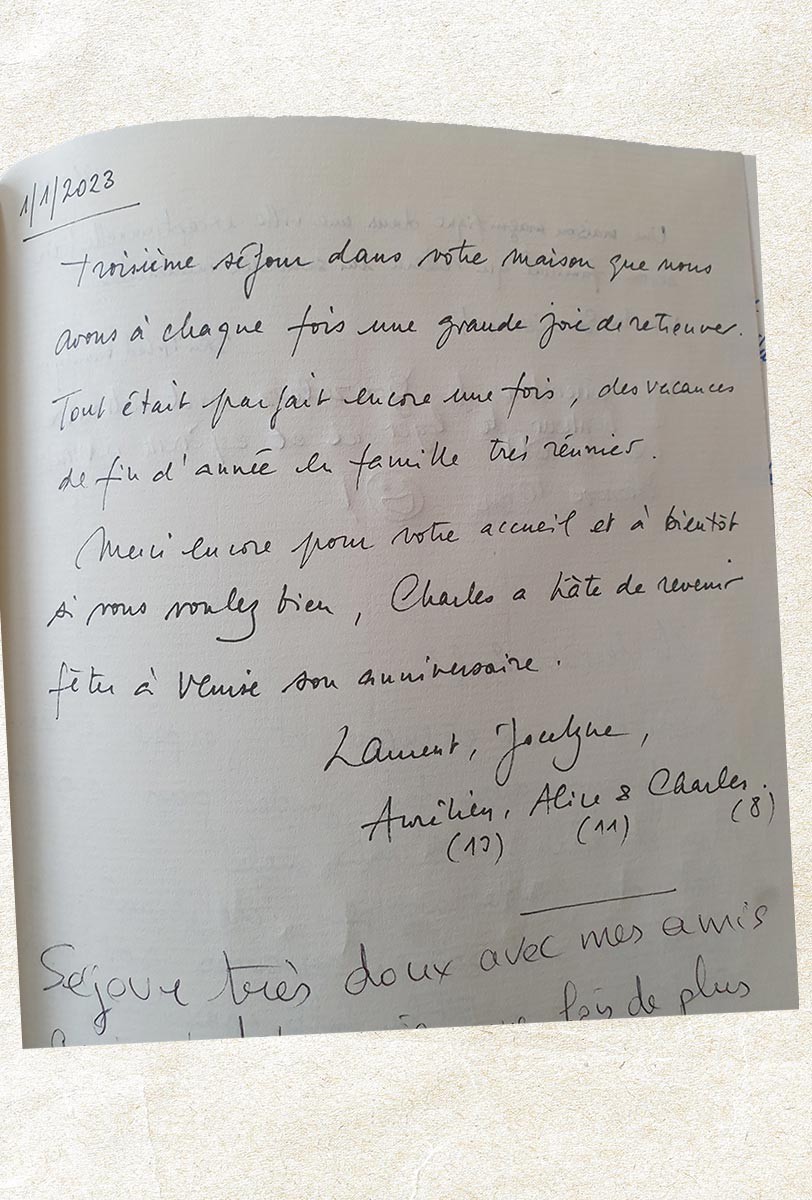 1/1/2023
Troisième séjour dans votre maison que nous
avons à chaque fois une grande joie de retrouver.
Tout était parfait encore une fois, des vacances
de fin d'année en famille très réunies.
Merci encore pour votre accueil et à bientôt
si vous voulez bien, Charles a hâte de revenir
fêter à Venise son anniversaire.
Laurent, Jocelyne,
Aurélien, Alice & Charles.
(11) (8)
Séjour très doux avec mes amis
fois de plus